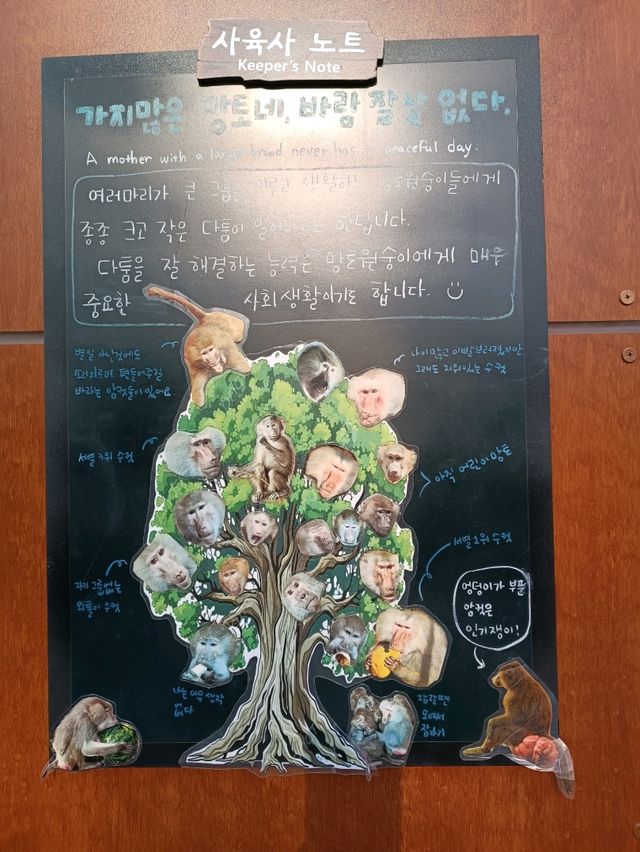 사육사 노트
Keeper's Note
가지많은 망토네, 바람 잘 날 없다.
A mother with a large brood never has a peaceful day.
여러마리가 큰 그룹을 이루고 생활하는 망토원숭이들에게
종종 크고 작은 다툼이 일어나곤 한답니다.
다툼을 잘 해결하는 능력은 망토원숭이에게 매우
중요한 사회생활이기도 합니다.
별일 아닌것에도
편들어주길
바라는 암컷들이 있어요
나이먹고 이빨 부러졌지만
그래도 지위있는 수컷
서열 3위 수컷
아직 어린이 망토
서열 1위 수컷
자기 그룹없는
외톨이 수컷
엉덩이가 부푼
암컷은
인기쟁이!
나는 아무 생각
없다.
잠잘땐
모여서
잠자기